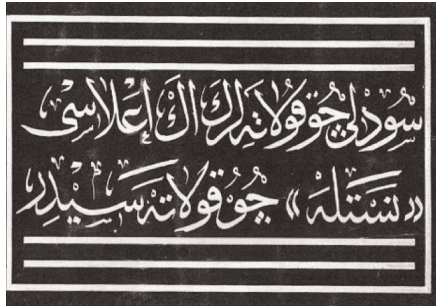 سودلی چوقولاته لرك اڭ إعلاسی
«نستله» چوقولاته سیدر